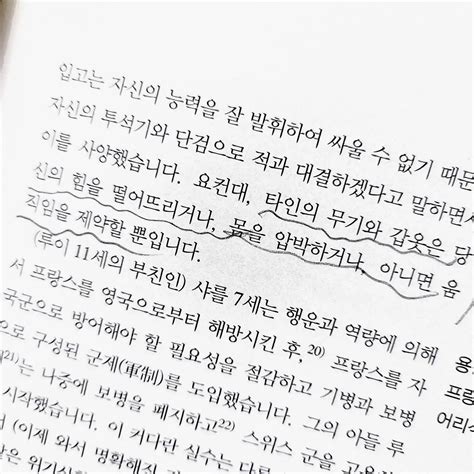 입고는 자신의 능력을 잘 발휘하여 싸울 수 없기 때문
자신의 투석기와 단검으로 적과 대결하겠다고 말하면서
이를 사양했습니다. 요컨대, 타인의 무기와 갑옷은 당
신의 힘을 떨어뜨리거나, 몸을 압박하거나, 아니면 움
직임을 제약할 뿐입니다.
(루이 11세의 부친인) 샤를 7세는 행운과 역량에 의해
서 프랑스를 영국으로부터 해방시킨 후,20) 프랑스를 자
국군으로 방어해야 할 필요성을 절감하고 기병과 보병
으로 구성된 군제(軍制)를 도입했습니다. 그의 아들 루
21)는 나중에 보병을 폐지하고22) 스위스 군을
시작했습니다. 이 커다란 실수는
(이제 와서
용
프랑
어리석